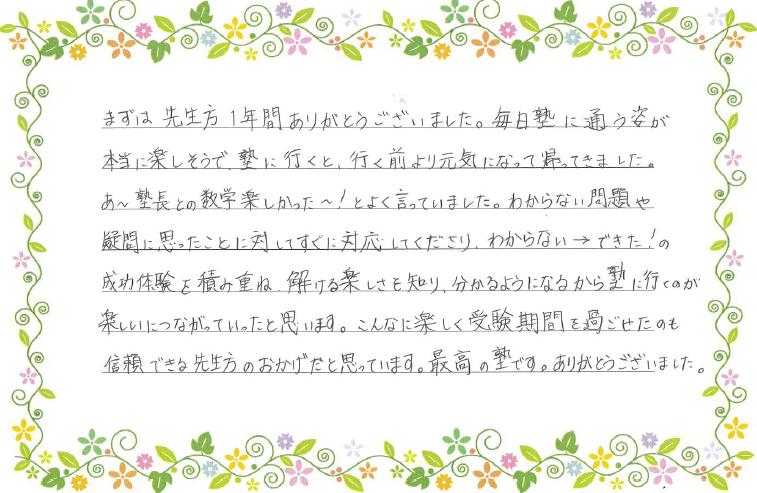 まずは先生方1年間ありがとうございました。毎日塾に通う姿が
本当に楽しそうで、塾に行くと、行く前より元気になって帰ってきました。
あ～塾長との数学楽しかった～！とよく言っていました。わからない問題や
疑問に思ったことに対してすぐに対応してくださり、わからない→できた！の
成功体験を積み重ね、解ける楽しさも知り、分かるようになるから塾に行くのが
楽しいにつながっていったと思います。こんなに楽しく受験期間を過ごせたのも
信頼できる先生方のおかげだと思っています。最高の塾です。ありがとうございました。